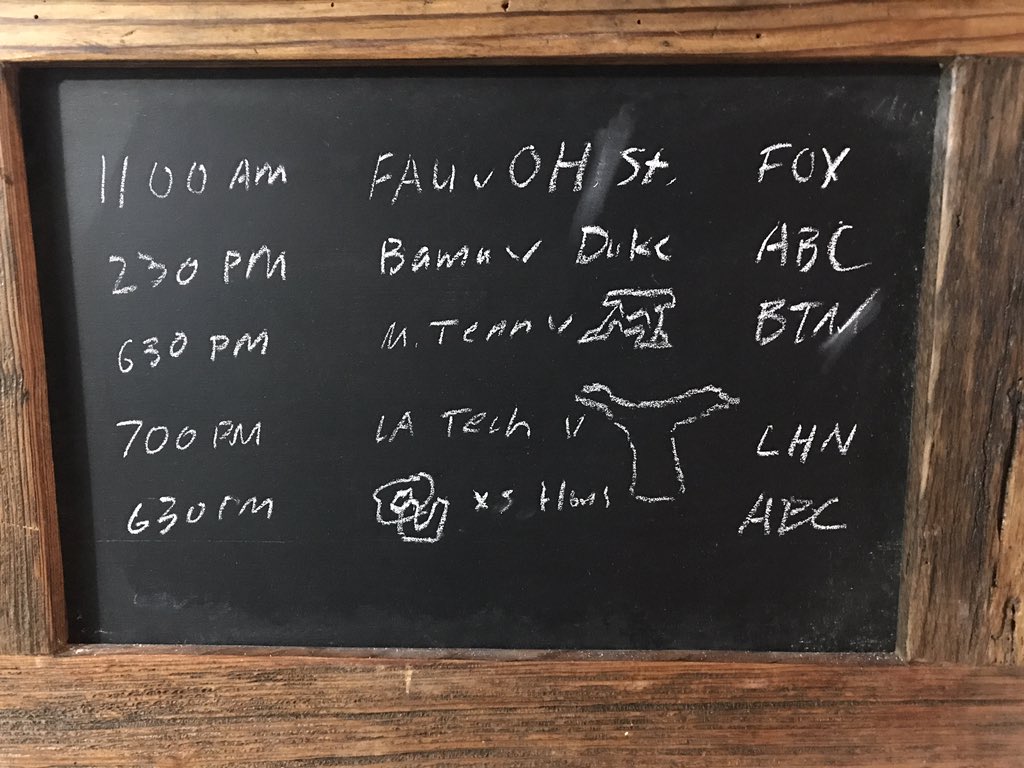 11 00 AM FAU v OH. St. FOX
230 PM Bama v Duke ABC
630 PM M. Tenn v M BTN
700 PM LA Tech v LHN
630 PM OU XS Hous ABC